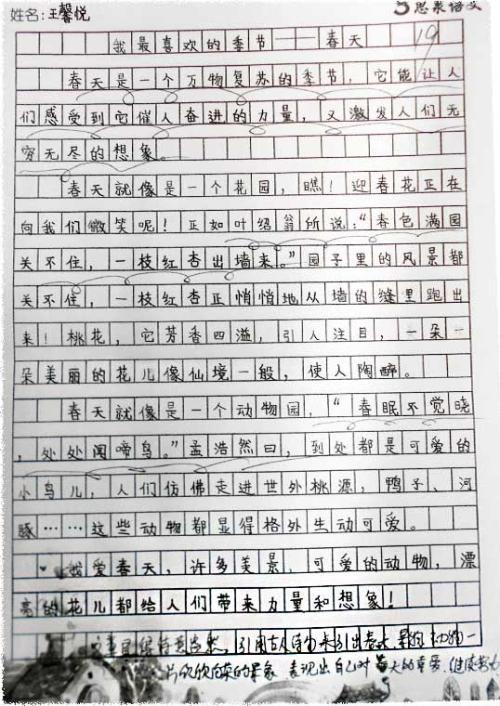 姓名：王馨悦
思泉语文
19
我最喜欢的季节——春天
春天是一个万物复苏的季节，它能让人
们感受到它催人奋进的力量，又激发人们无
穷无尽的想象。
春天就像是一个花园，瞧！迎春花正在
向我们微笑呢！正如叶绍翁所说：“春色满园
关不住，一枝红杏出墙来。”园子里的风景都
关不住，一枝红杏正悄悄地从墙的缝里跑出
来！桃花，它芳香四溢，引人注目，一朵一
朵美丽的花儿像仙境一般，使人陶醉。
春天就像是一个动物园，“春眠不觉晓
，处处闻啼鸟。”孟浩然曰，到处都是可爱的
小鸟儿，人们仿佛走进世外桃源，鸭子、河
豚……这些动物都显得格外生动可爱。
我爱春天，许多美景，可爱的动物，漂
亮的花儿都给人们带来力量和想象！
引用古人诗句来引出春天
片欣欣向荣的景象 表现出自己对春天的喜爱，继续努力